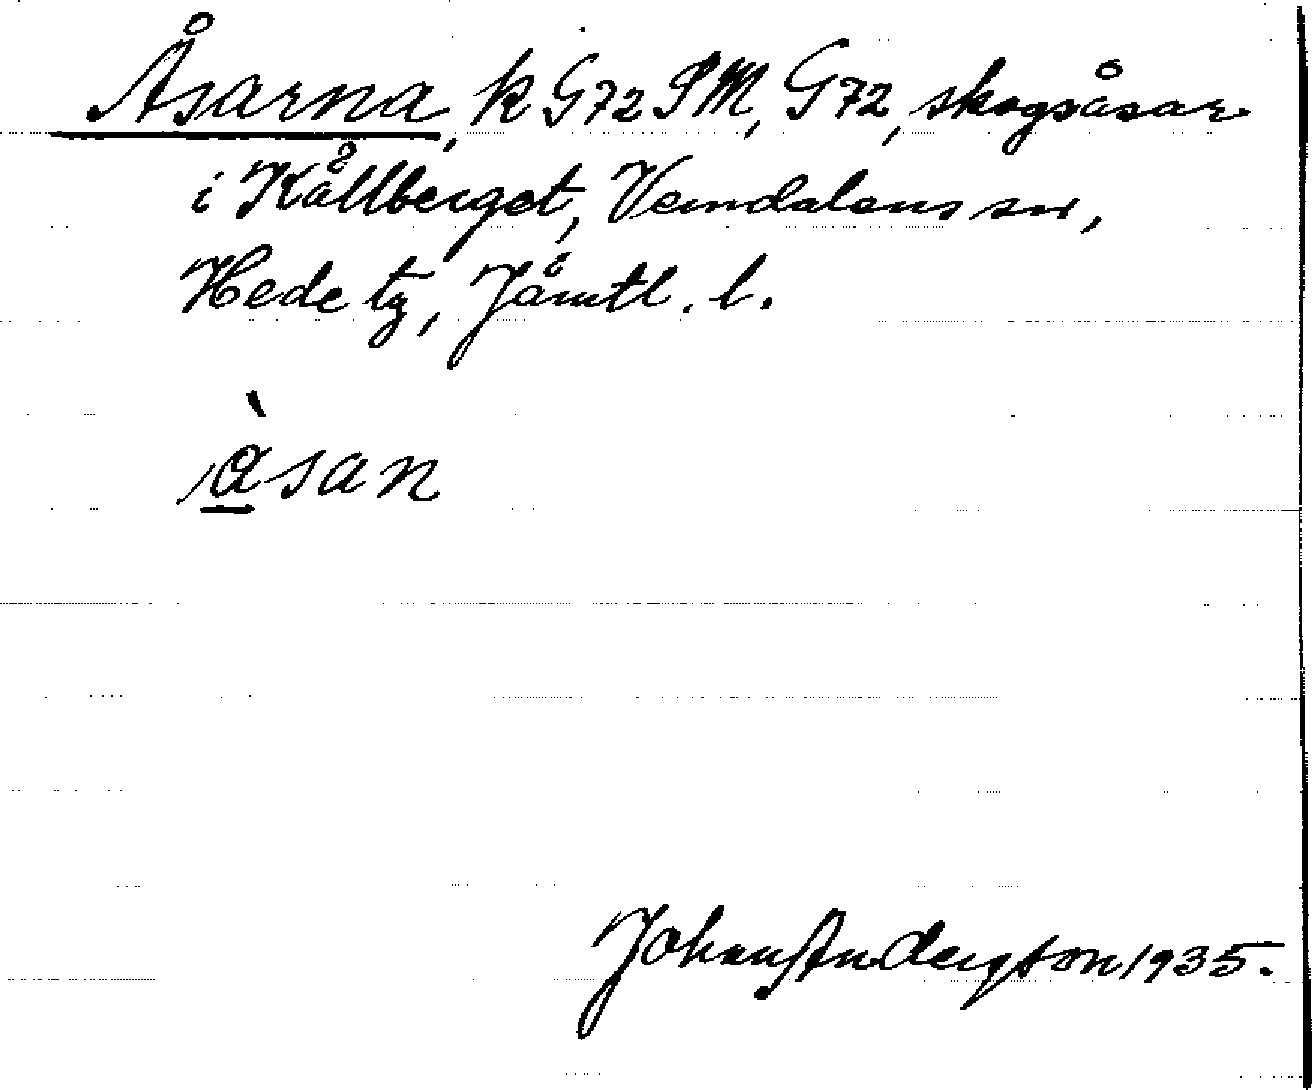 Åsarna, k G72 SM, G72, skogsåsar
i Kållberget, Vemdalens sn,
Hede tg, Jämtl. l.
åsan
Johan Andersson 1935.